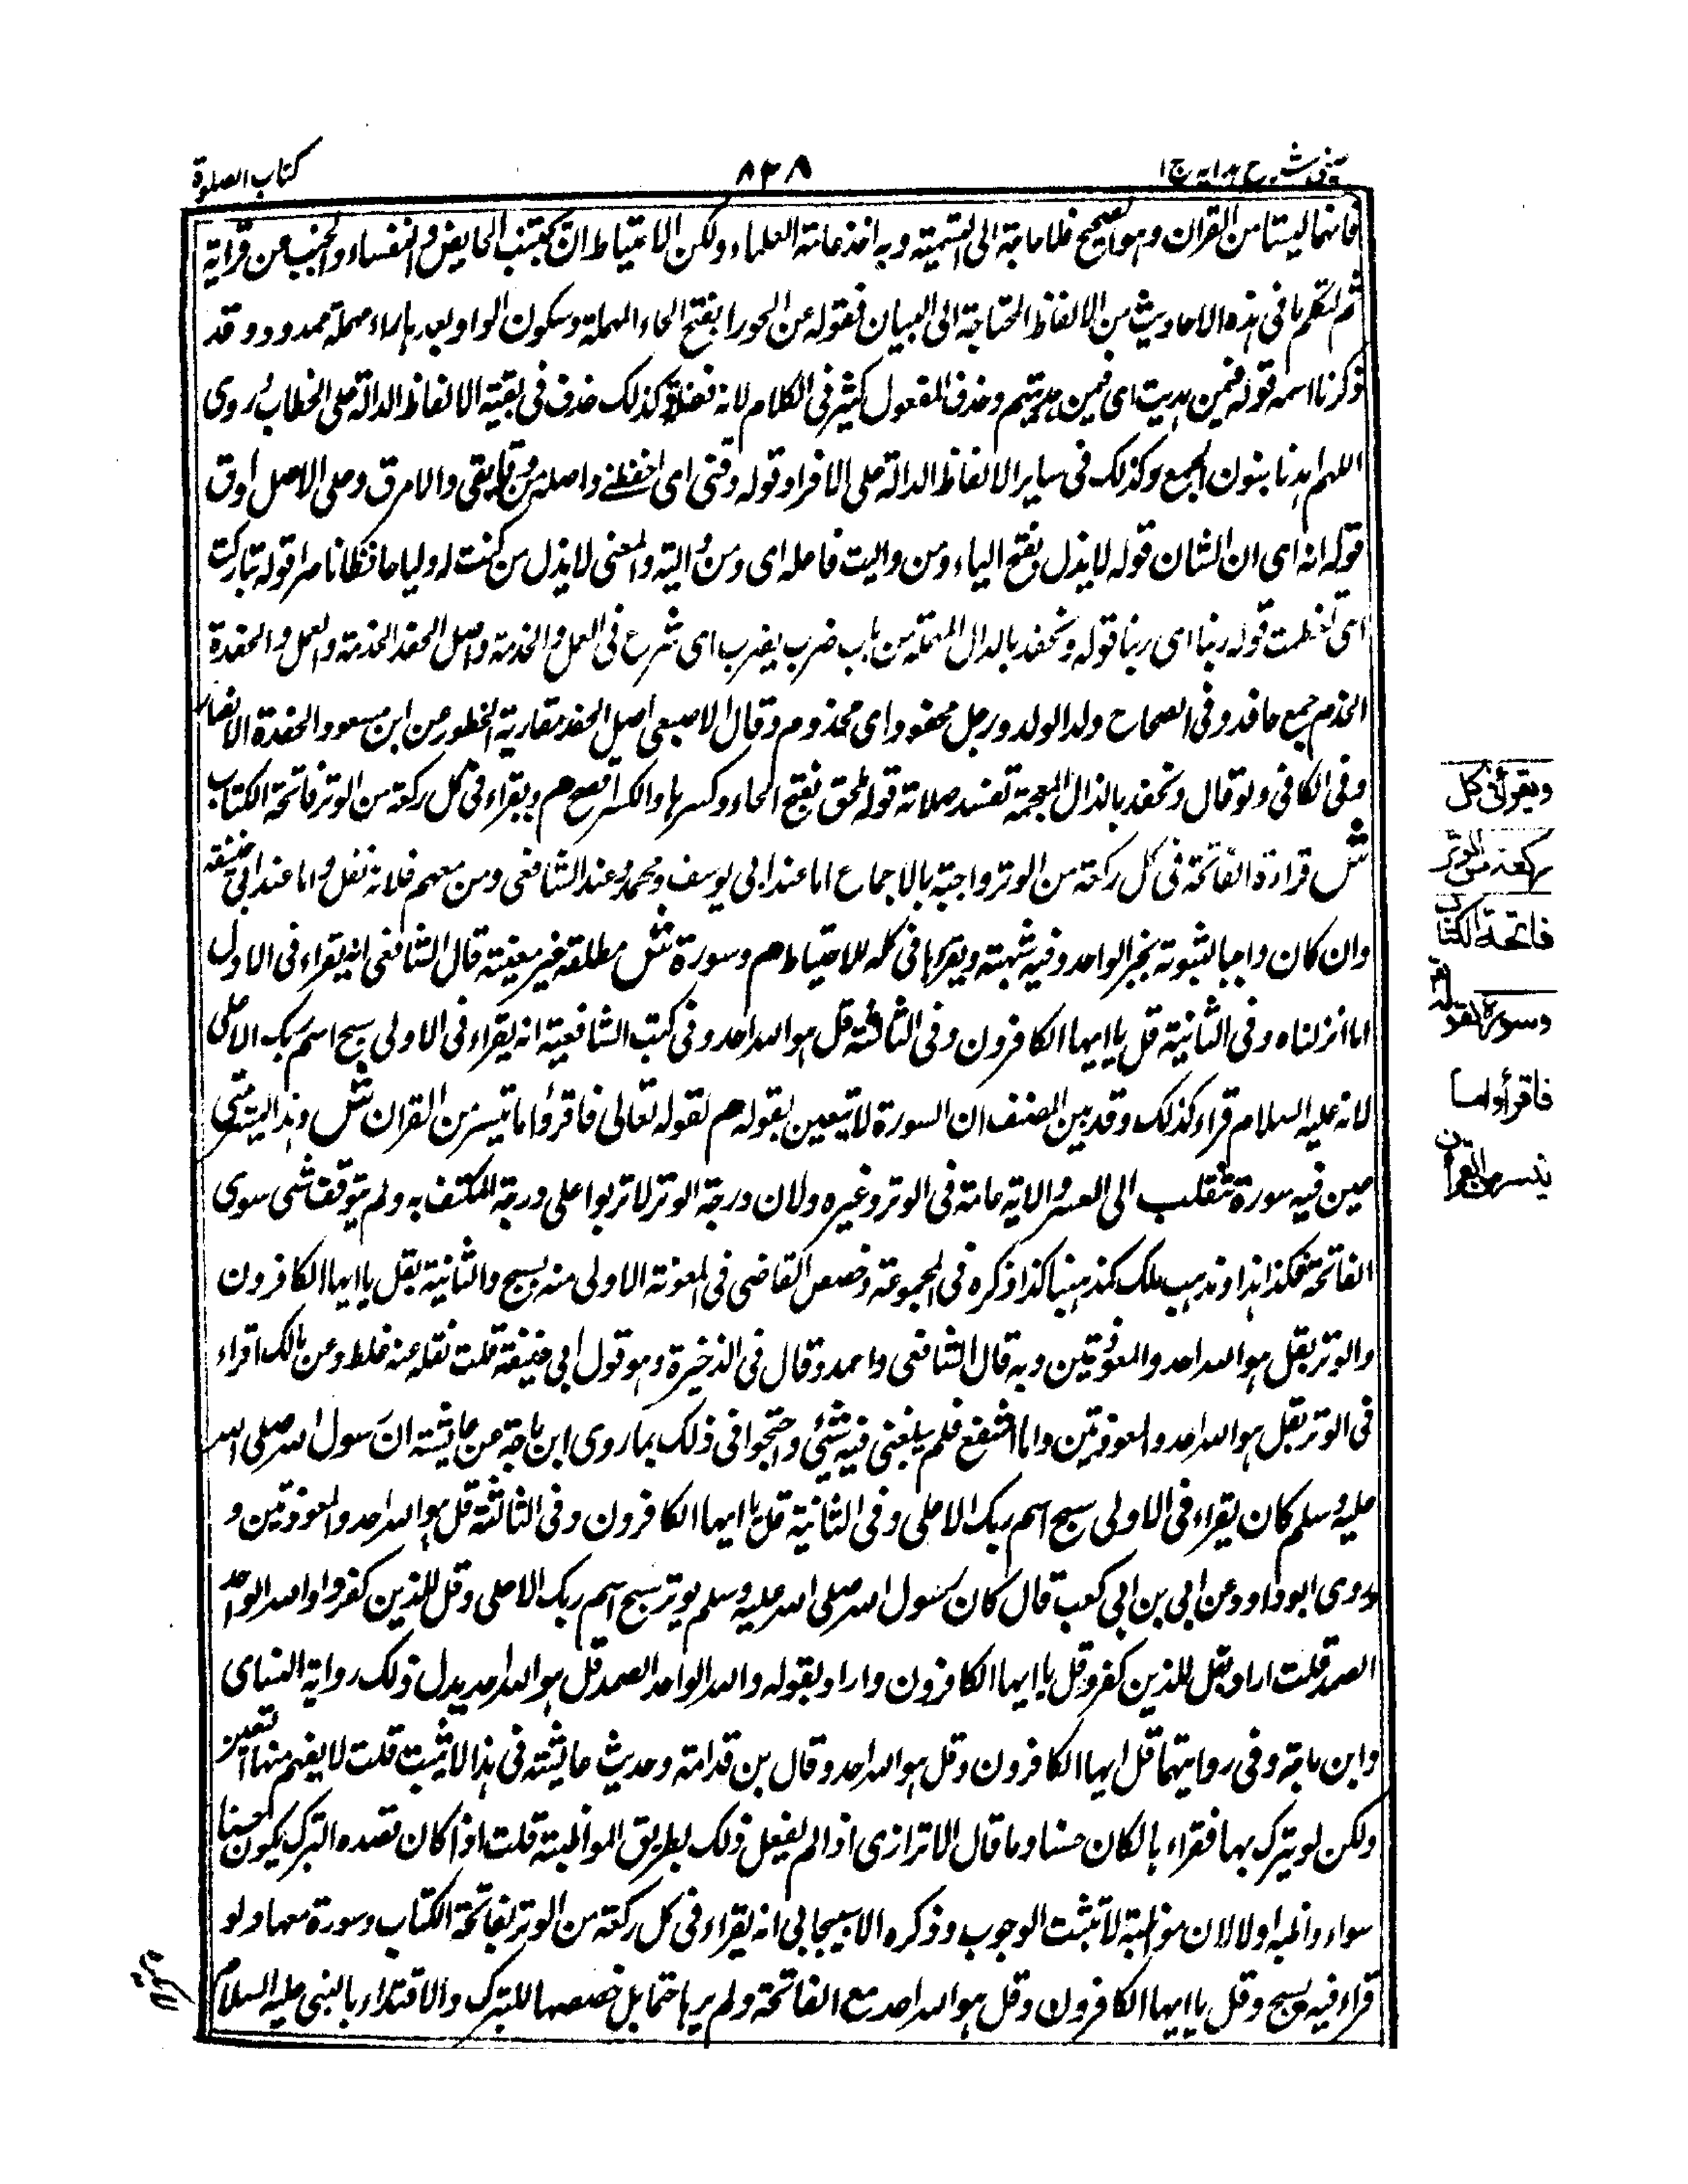 عینی شرح ہدایہ ج ا
۸۳۸
کتاب الصلوة
فانہما لیستا من القران وہو الصحیح فلا حاجة الی التسمیة وبہ اخذ عامة العلماء ولکن الاحتیاط ان تجتنب الحایض والنفساء والجنب من قرایة
ثم نتکلم ما فی ہذہ الاحادیث من الالفاظ المحتاجة الی البیان فقولہ عن الحورا بفتح الحاء المہملة وسکون الواو بعدہا راء مہملة ممدودوقد
ذکرنا اسمہ قولہ فیمن ہدیت ای فیمن ہدیتہم وحذف المفعول کثیر فی الکلام لانہ فضلة وکذلک حذف فی بقیة الالفاظ الدالة علی الخطاب روی
اللہم اہدنا بنون الجمع وکذلک فی سایر الالفاظ الدالة علی الافراد قولہ وقنی ای احفظنے واصلہ من وقا یقی والامر ق وعلی الاصل اوق
قولہ انہ ای ان الشان قولہ لا یذل بفتح الیاء ومن والیت فاعلہ ای ومن والیتہ والمعنی لا یذل من کنت لہ ولیا حافظا ناصرا قولہ تبارکت
ای تعظمت قولہ ربنا ای ربنا قولہ ونحفد بالدال المہملة من باب ضرب یضرب ای شرع فی العمل والخدمة واصل الحفد الخدمة والعمل والحفدة
الخدم جمع حافد وفی الصحاح ولد الولد ورجل محفود ای مخدوم وقال الاصمعی اصل الحفد مقاربة الخطو وعن ابن مسعود الحفدة الانصار
وفی الکافی ولو قال ونحفذ بالذال المعجمة تفسد صلاتہ قولہ ملحق بفتح الحاء وکسرہا والکسر افصح م ویقراء فی کل رکعة من الوتر فاتحة الکتاب
ش قراءة الفاتحة فی کل رکعة من الوتر واجبة بالاجماع اما عند ابی یوسف ومحمد وعند الشافعی ومن معہم فلانہ نفل واما عند ابی حنیفة
وان کان واجبا لثبوتہ بخبر الواحد وفیہ شبہتہ ویقرہا فی کلہ للاحتیاط م وسورة ش مطلقة غیر معینة قال الشافعی انہ یقراء فی الاول
اما انزلناہ وفی الثانیة قل یا ایہا الکافرون وفی الثالثة قل ہو اللہ احد وفی کتب الشافعیة انہ یقراء فی الاولی سبح اسم ربک الاعلی
لانہ علیہ السلام قراء کذلک وقد بین المصنف ان السورة لا تتعین بقولہ م لقولہ تعالی فاقرؤا ما تیسر من القران ش وہذا الیسر متی
عین فیہ سورة تنقلب الی العسر والایة عامة فی الوتر وغیرہ ولان درجة الوتر لا تربوا علی درجة المکتف بہ ولم یتوقف شی سوی
الفاتحة فکذا ہذا ومذہب ملک کمذہبنا کذا ذکرہ فی المجموعة وخصص القاضی فی المعونة الاولی منہ بسبح والثانیة بقل یا ایہا الکافرون
والوتر بقل ہو اللہ احد والمعوذتین وبہ قال الشافعی واحمد وقال فی الذخیرة وہو قول ابی حنیفة قلت نقلہ عنہ غلط وعن مالک اقراء
فی الوتر بقل ہو اللہ احد والمعوذتین واما الشفع فلم یبلغنی فیہ شئی واحتجوا فی ذلک بما روی ابن ماجة عن عایشة ان رسول اللہ صلی اللہ
علیہ وسلم کان یقراء فی الاولی سبح اسم ربک الاعلی وفی الثانیة قل یا ایہا الکافرون وفی الثالثة قل ہو اللہ احد والمعوذتین و
روی ابو داود عن ابی بن ابی کعب قال کان رسول اللہ صلی اللہ علیہ وسلم یوتر بسبح اسم ربک الاعلی وقل للذین کفروا واللہ الواحد
الصمد قلت اراد بقل للذین کفرو قل یا ایہا الکافرون واراد بقولہ واللہ الواحد الصمد قل ہو اللہ احد یدل ذلک روایة النسای
وابن ماجة وفی روایتہما قل ایہا الکافرون وقل ہو اللہ احد وقال بن قدامة وحدیث عایشة فی ہذا لا یثبت قلت لا یفہم منہا التعین
ولکن لو یترک بہا فقراء بالکان حسنا وما قال الاترازی اذا لم یفعل ذلک بطریق المواظبة قلت اذا کان قصدہ التبرک یکون حسنا
سواء واظبہ اولا لان مواظبة لا تثبت الوجوب وذکرہ الاسبیجابی انہ یقراء فی کل رکعة من الوتر بفاتحة الکتاب وسورة معہا ولو
قراء فیہ بسبح وقل یا ایہا الکافرون وقل ہو اللہ احد مع الفاتحة ولم یرہا حتما بل خصصہا للتبرک والاقتداء بالنبی علیہ السلام
ویقرأ فی کل
رکعة من الوتر
فاتحة الکتاب
وسورة لقوله تعالی
فاقرأوا ما
تیسر من القرآن